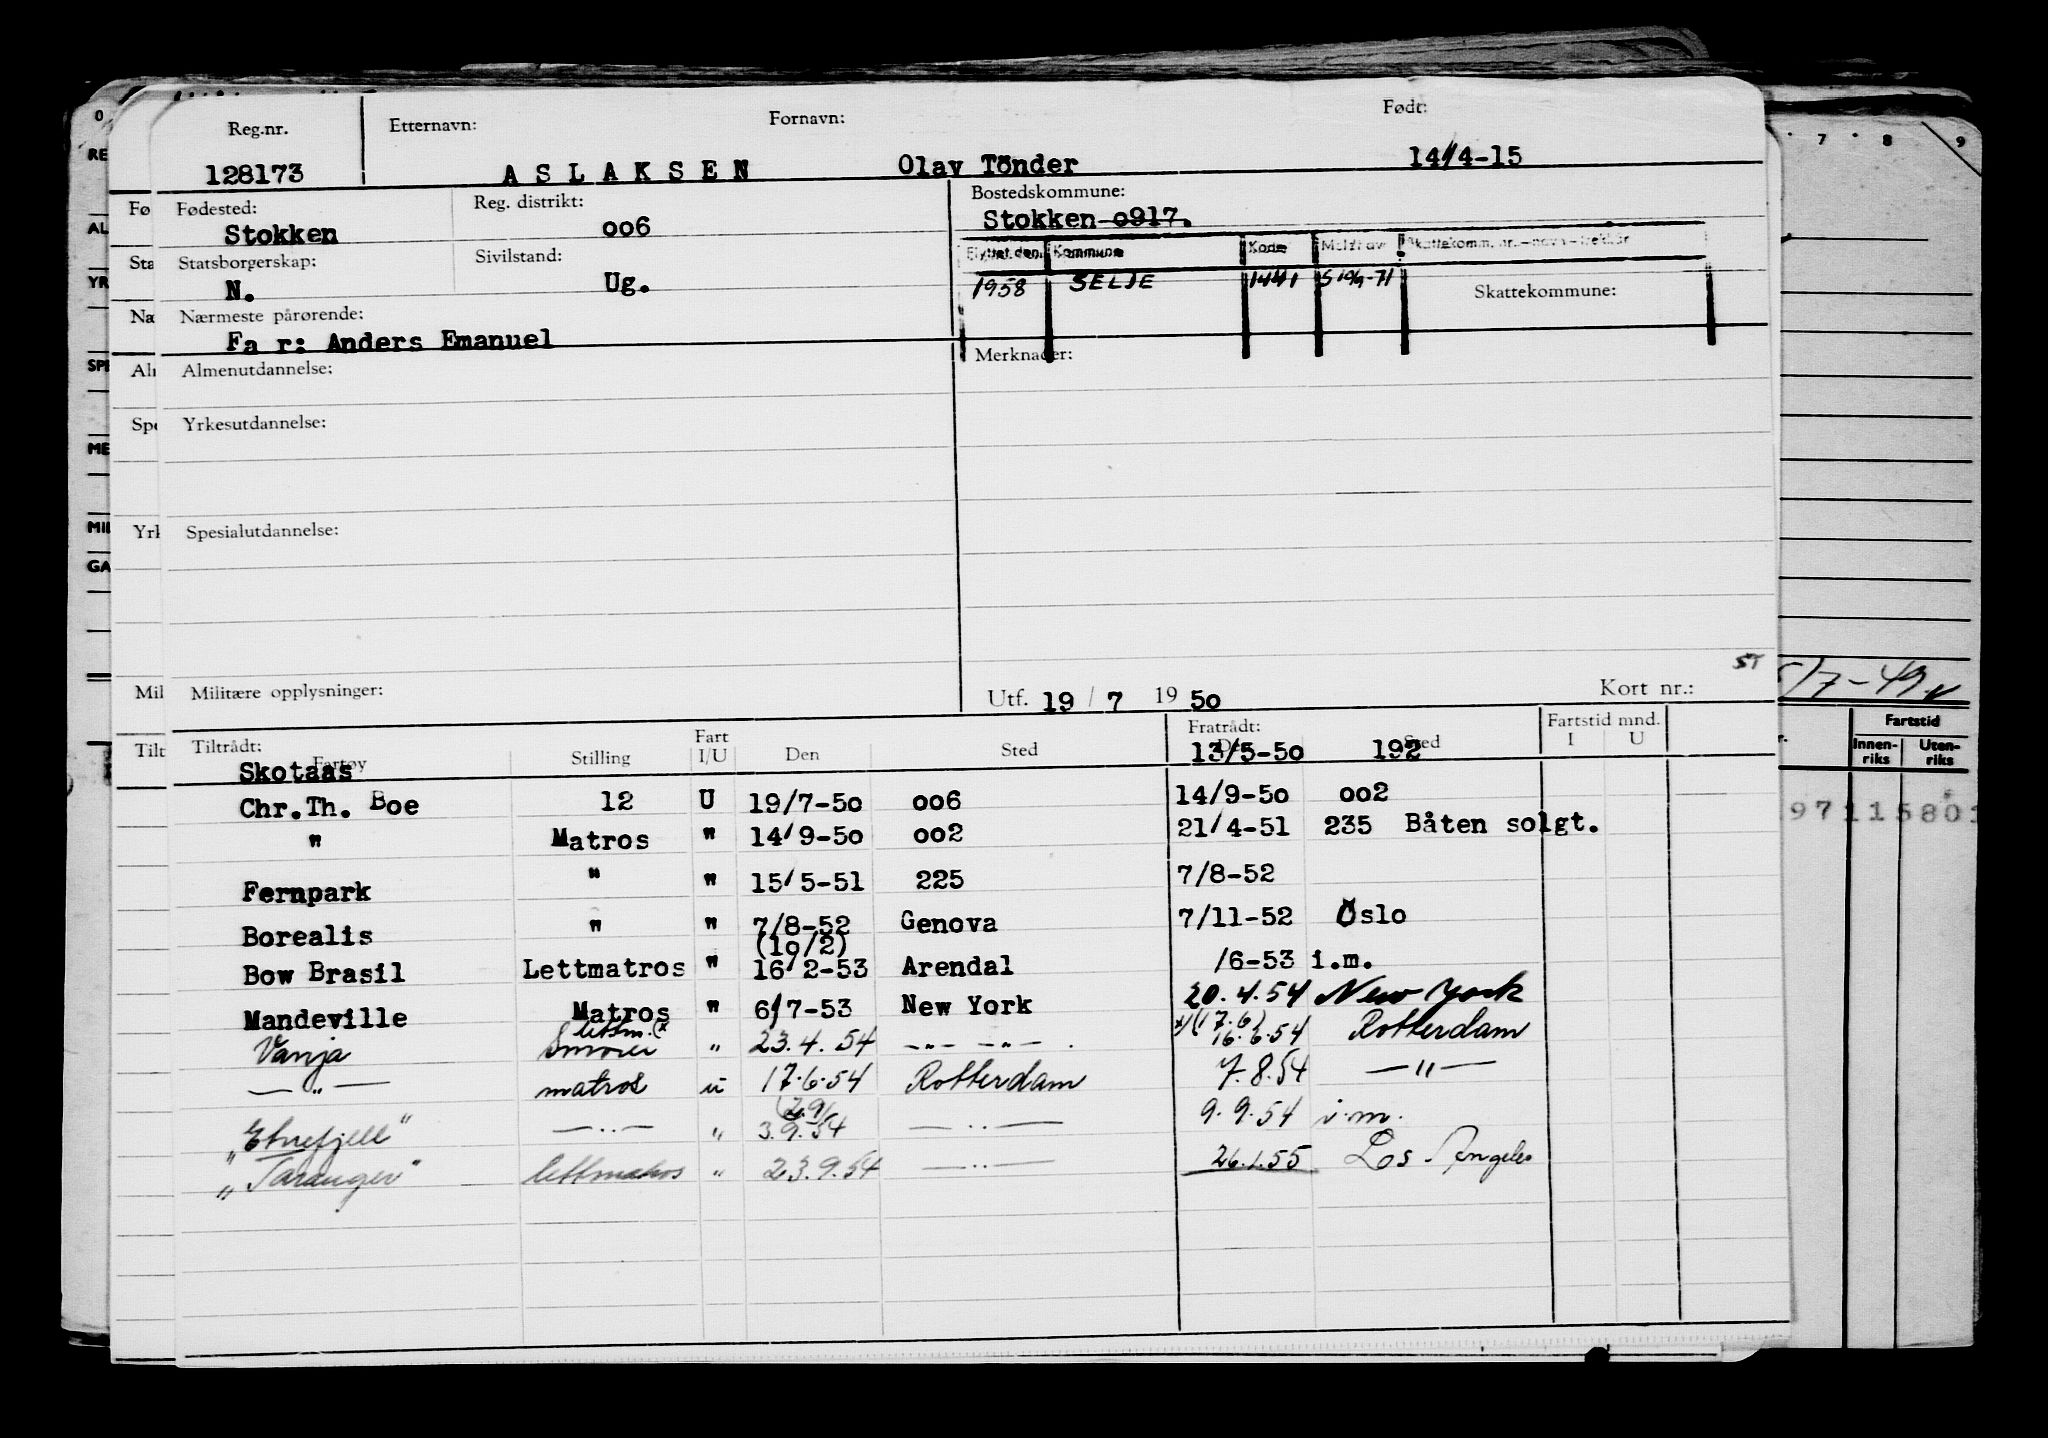 Reg.nr. Etternavn: Fornavn: Født:
128173 ASLAKSEN Olav Tönder 14/4-15
Fødested: Reg. distrikt: Bostedskommune:
Stokken 006 Stokken 0917.
Flyttet den Kommune Kode Meldt av Skattekomm. nr. - navn - trekkår
Statsborgerskap: Sivilstand:
N. Ug. 1958 SELJE 1441 Skattekommune:
Nærmeste pårørende:
Fa r: Anders Emanuel
Almenutdannelse: Merknader:
Yrkesutdannelse:
Spesialutdannelse:
ST
Militære opplysninger: Utf. 19 / 7 19 50 Kort nr.:
Tiltrådt: Fratrådt: Fartstid mnd.
Fartøy Stilling Fart I/U Den Sted Den Sted I U
Skotaas 13/5-50 192
Chr.Th. Boe 12 U 19/7-50 006 14/9-50 002
" Matros " 14/9-50 002 21/4-51 235 Båten solgt.
Fernpark " " 15/5-51 225 7/8-52
Borealis " " 7/8-52 Genova 7/11-52 Oslo
(10/2)
Bow Brasil Lettmatros " 16/2-53 Arendal /6-53 i.m.
Mandeville Matros " 6/7-53 New York 20.4.54 New York
lettm. (x x) (17.6)
Vanja Smører " 23.4.54 -"- -"- . 16.6.54 Rotterdam
-"- matros u 17.6.54 Rotterdam 7.8.54 -"-
(2.9)
"Etnefjell" -"- " 3.9.54 -"- 9.9.54 i.m.
"Taranger" lettmatros " 23.9.54 -"- 26.1.55 Los Angeles
0
RE
AL
YR
SPE
ME
MIL
GA
Fø
Sta
Næ
Alr
Spe
Yrk
Mil
Tilt
7 8 9
/7-49
Fartstid
Innen-riks Uten-riks
97115801